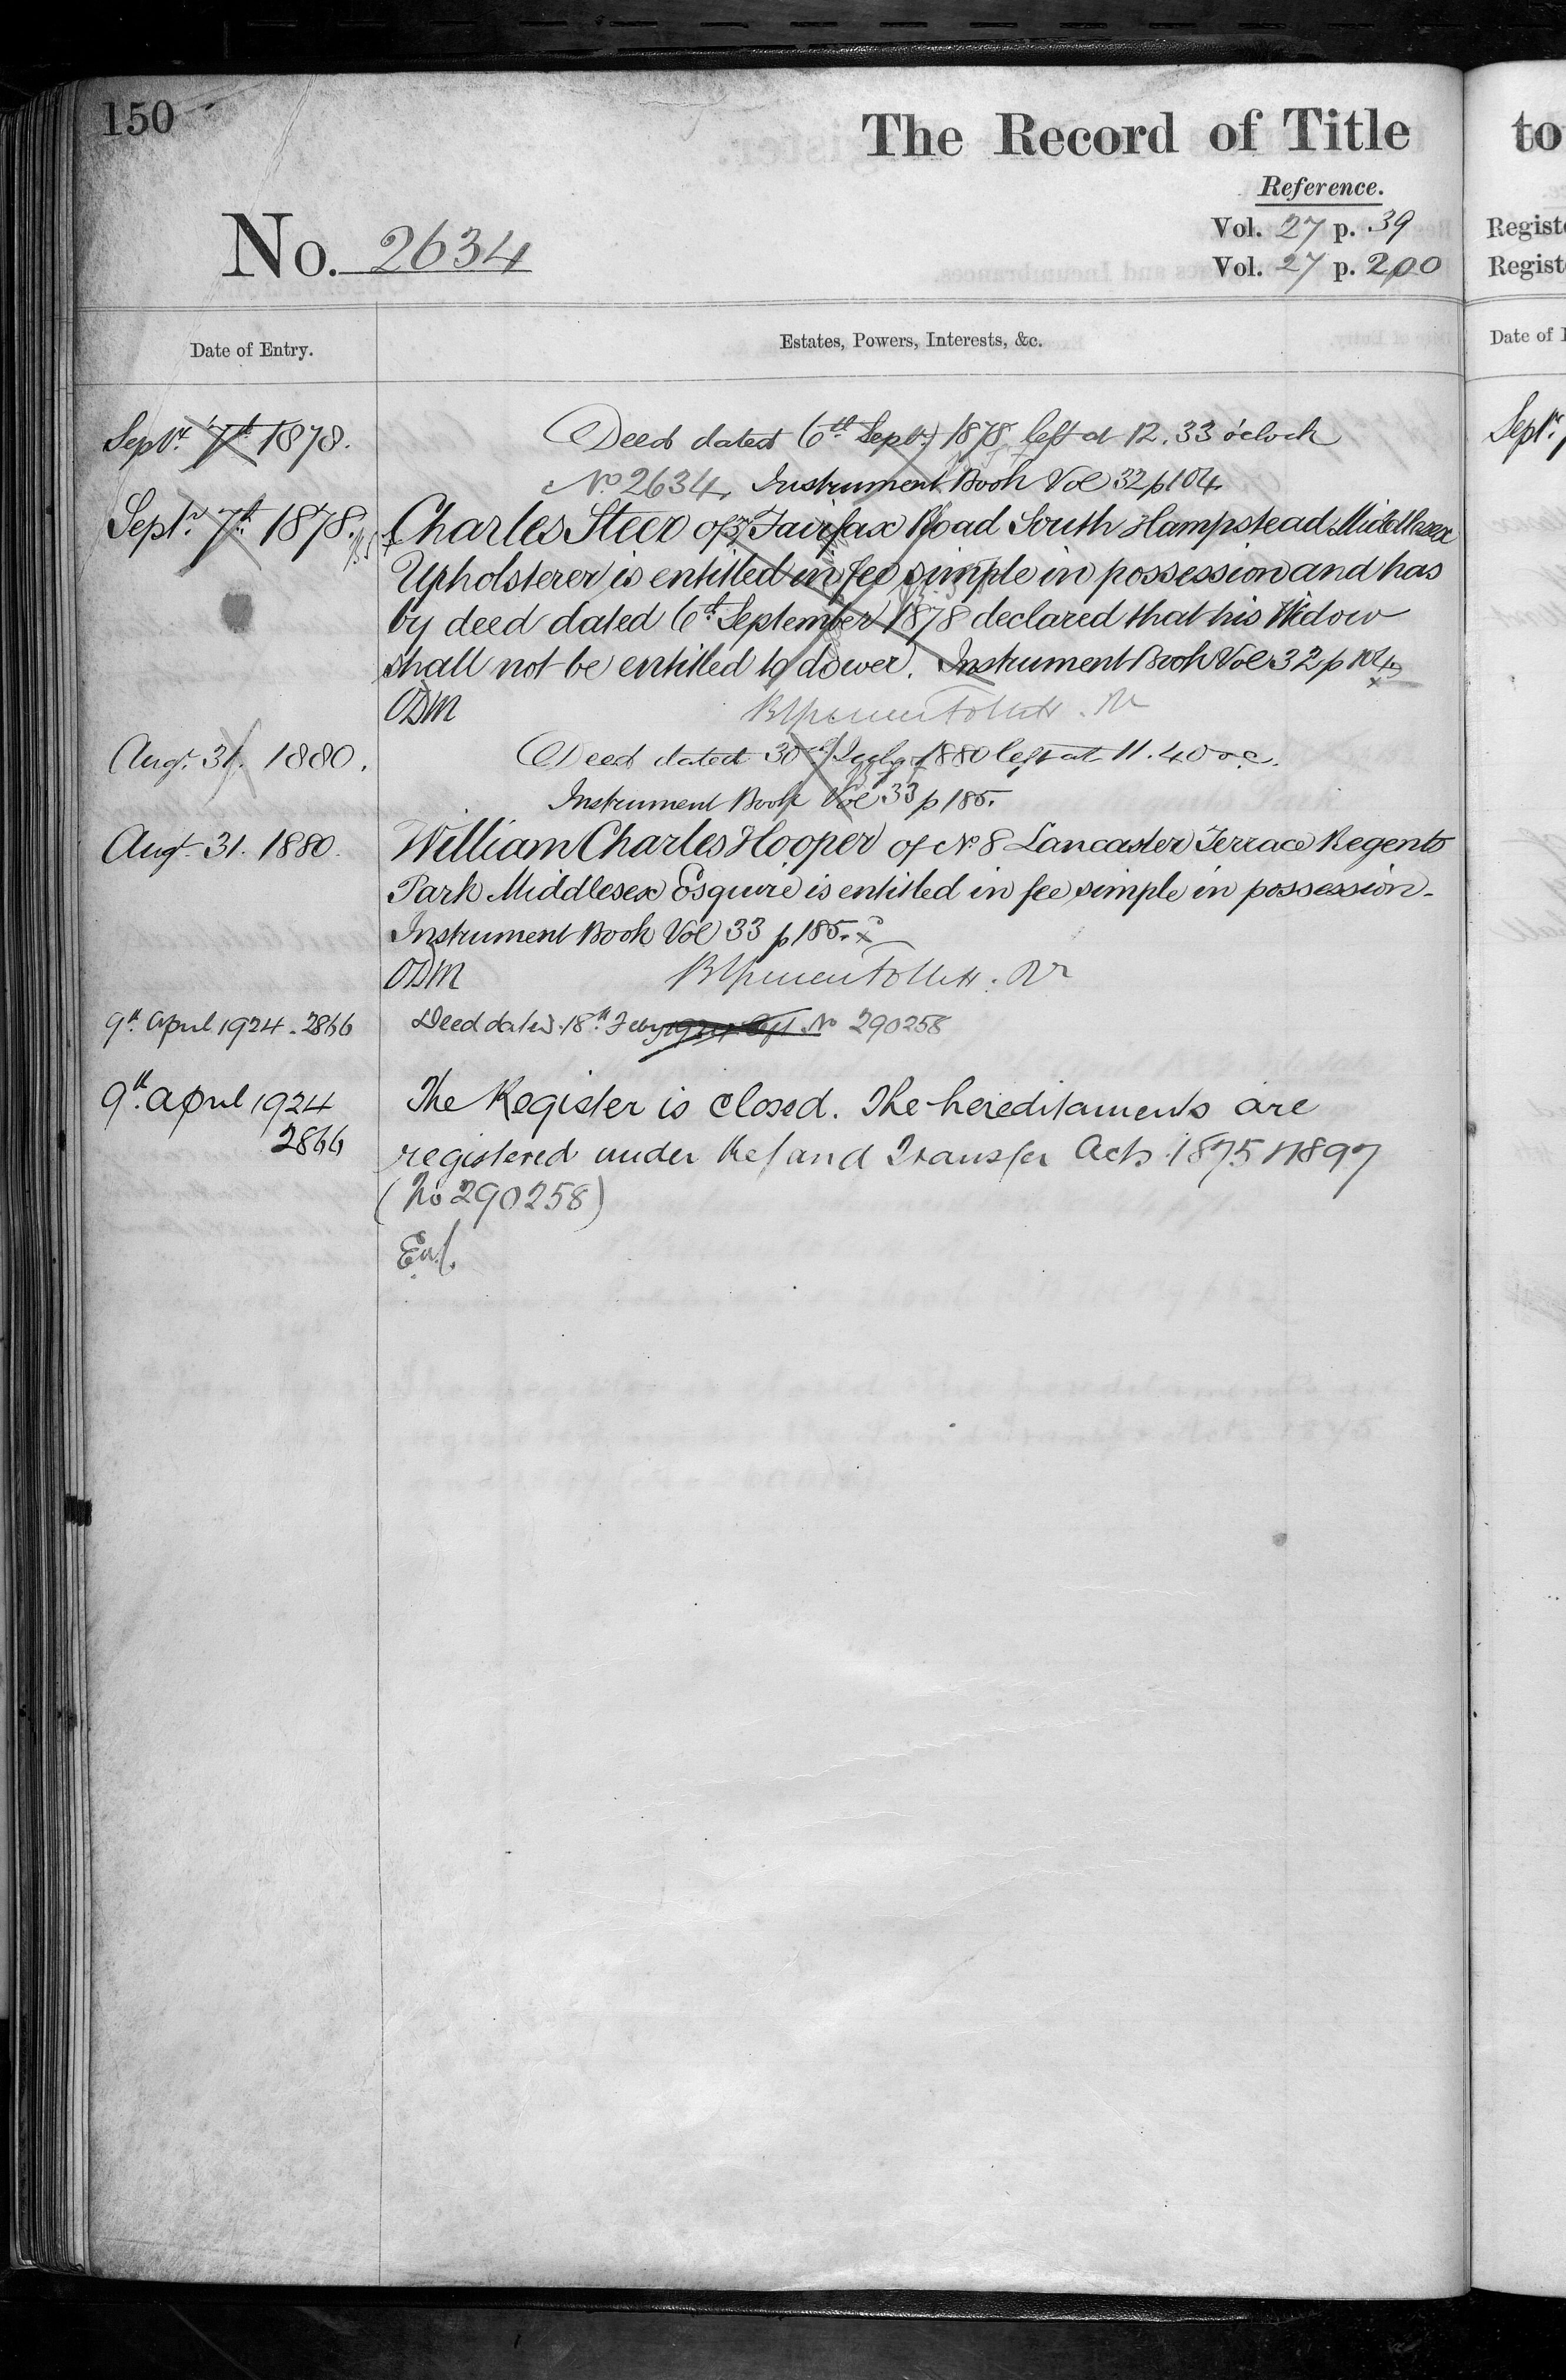 150
The Record of Title
Reference.
No. 2634
Vol. 27 p. 39
Vol. 27 p. 200
Date of Entry.
Estates, Powers, Interests, &c.
Septr. 7th 1878.
Deed dated 6th Septr. 1878 left at 12.33 o'clock
No. 2634. Instrument Book Vol 32 p 104.
Septr. 7th 1878.
Charles Steer of Fairfax Road South Hampstead Middlesex
Upholsterer is entitled in fee simple in possession and has
by deed dated 6th September 1878 declared that his Widow
shall not be entitled to dower. Instrument Book Vol 32 p 104
ODM
Augt. 31. 1880.
Deed dated 30th July 1880 left at 11.40 o.c.
Instrument Book Vol 33 p 185.
Augt. 31. 1880.
William Charles Hooper of No. 8 Lancaster Terrace Regents
Park Middlesex Esquire is entitled in fee simple in possession.
Instrument Book Vol 33 p 185.
ODM
9th April 1924. 2866
Deed dated 18th Feby 1924 No 290258
9th April 1924
2866
The Register is closed. The hereditaments are
registered under the Land Transfer Acts 1875 & 1897
(No 290258)
to
Registe
Registe
Date of E
Septr. 7